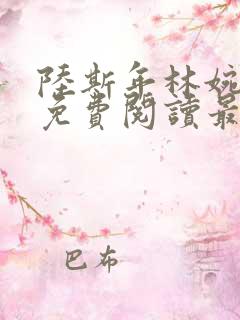 陸斯年林婉
免費閱讀最
巴布